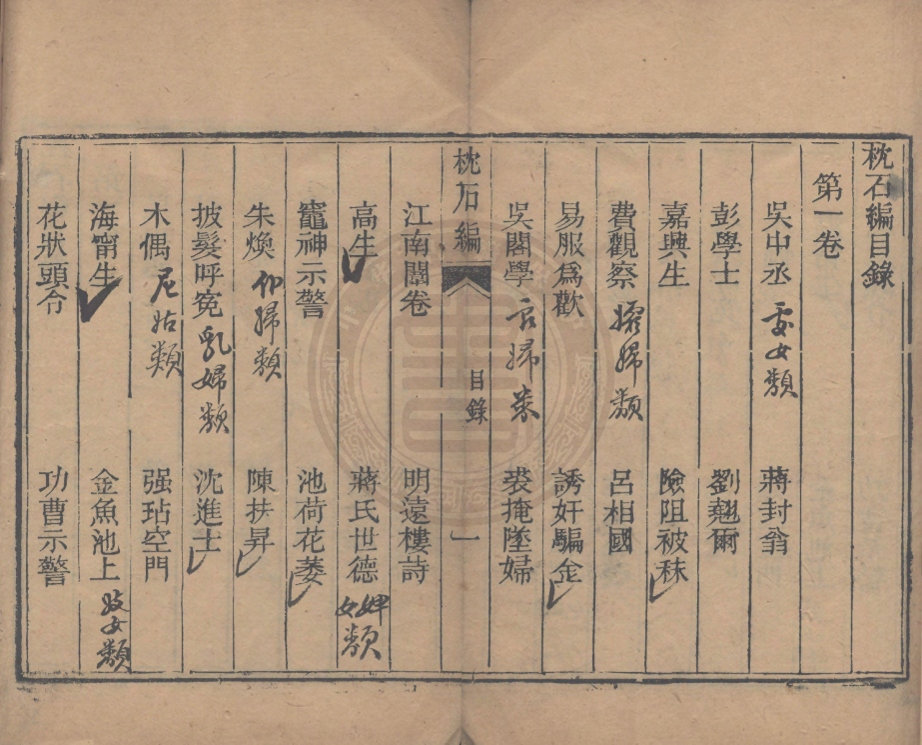 枕石編目錄
第一卷
吳中丞 處女類 蔣封翁
彭學士 劉翹爾
嘉興生 險阻被秣
費觀察 孀婦類 呂相國
易服為歡 誘奸騙金
吳閣學 衣婦类 裘掩墜婦
枕石編 目錄 一
江南闈卷 明遠樓詩
高生 蔣氏世德 婢女類
竈神示警 池荷花萎
朱煥 僕婦類 陳扶昇
披髮呼冤 乳婦類 沈進士
木偶 尼姑類 强玷空門
海甯生 金魚池上 妓女類
花狀頭令 功曹示警